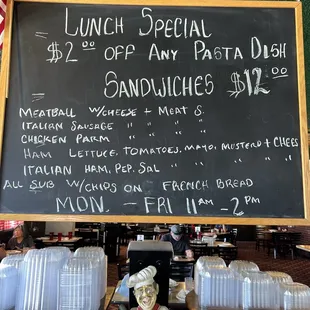 LUNCH SPECIAL
$2.00 OFF ANY PASTA DISH
= SANDWICHES $12.00
MEATBALL W/CHEESE + MEAT S.
ITALIAN SAUSAGE " " " "
CHICKEN PARM " " " "
HAM LETTUCE, TOMATOES, MAYO, MUSTERD + CHEES
ITALIAN HAM, PEP. SAL " " "
ALL SUB W/CHIPS ON FRENCH BREAD
MON. - FRI 11AM - 2PM